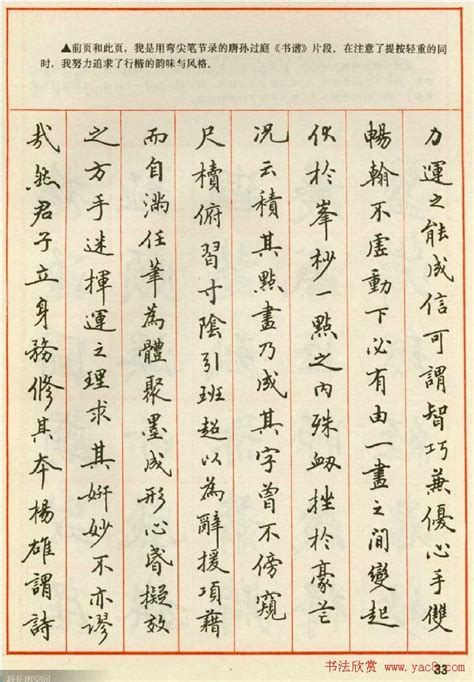 ▲前页和此页，我是用弯尖笔节录的唐孙过庭《书谱》片段。在注意了提按轻重的同
时，我努力追求了行楷的韵味与风格。
力運之能成信可謂智巧兼優心手雙
暢翰不虛動下必有由一畫之間變起
伏於峯杪一點之內殊衄挫於豪芒
况云積其點畫乃成其字曾不傍窺
尺櫝俯習寸陰引班超以為辭援項藉
而自滿任筆為體聚墨成形心昏擬效
之方手迷揮運之理求其妍妙不亦謬
哉然君子立身務修其本楊雄謂詩
33
书法欣赏 www.yac8.com